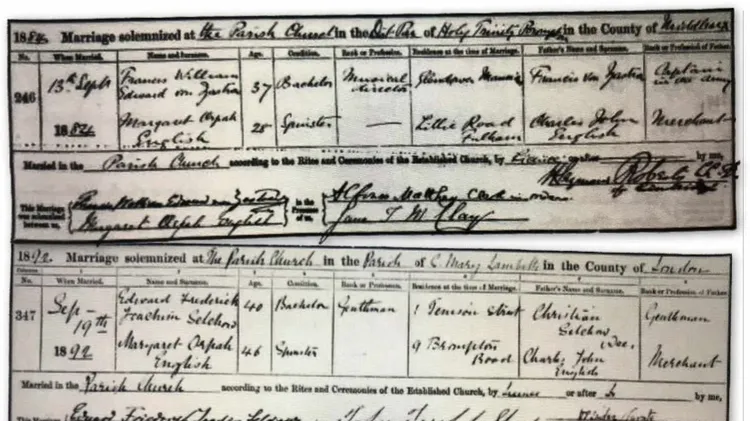 1884. Marriage solemnized at the Parish Church in the of Holy Trinity in the County of Middlesex
No. When Married. Name and Surname. Age. Condition. Rank or Profession. Residence at the time of Marriage. Father's Name and Surname. Rank or Profession of Father.
246 13th Sept 1884 Francis William Edward von Zastra 37 Bachelor Musical director Mansions Francis von Zastra Captain in the army
Margaret Orpah English 28 Spinster — Lillie Road Fulham Charles John English Merchant
Married in the Parish Church according to the Rites and Ceremonies of the Established Church, by Licence by me,
This Marriage was solemnized between us, Francis William Edward von
Margaret Orpah English
in the Presence of us,
Jane T M Clay
1892. Marriage solemnized at The Parish Church in the Parish of S Mary Lambeth in the County of London
No. When Married. Name and Surname. Age. Condition. Rank or Profession. Residence at the time of Marriage. Father's Name and Surname. Rank or Profession of Father.
347 Sep- 19th 1892 Edward Frederick Joachim Selchow 40 Bachelor Gentleman 1 Tenison Street Christian Selchow Dec. Gentleman
Margaret Orpah English 46 Spinster 9 Brompton Road Charles John English Merchant
Married in the Parish Church according to the Rites and Ceremonies of the Established Church, by Licence or after by me,